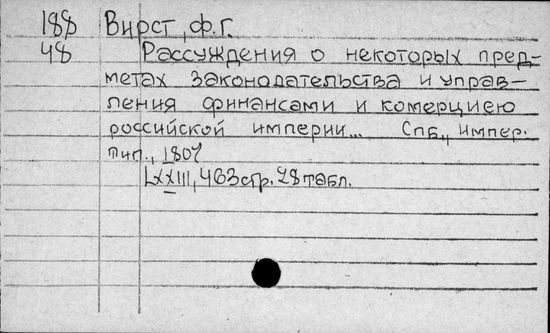 188 Вирст, Ф.Г.
48 Рассуждения о некоторых пред-
метах законодательства и управ-
ления финансами и комерциею
российской империи... Спб., импер.
тип., 1807
LXXIII, 463 стр. 28 табл.